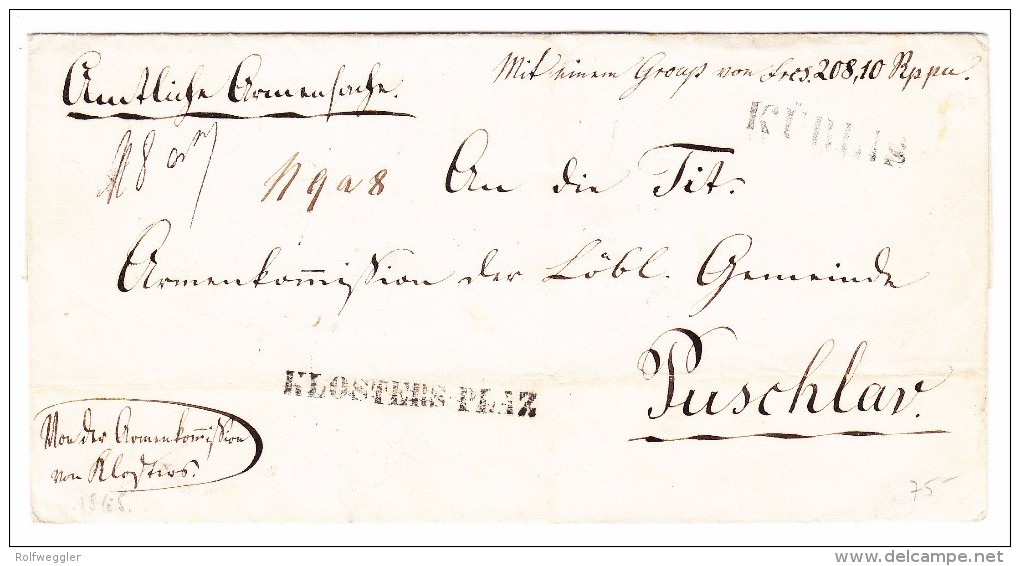 Amtliche Armensache.
Mit einem Group von Frcs. 208,10 Rppn.
KÜBLIS
N 9 a 8
An die Tit.
Armenkom̅ission der Löbl. Gemeinde
Puschlav.
KLOSTERS-PLAZ
Von der Armenkom̅ission
von Klosters.
1868.
75-
Rolfweggler
www.delcampe.net